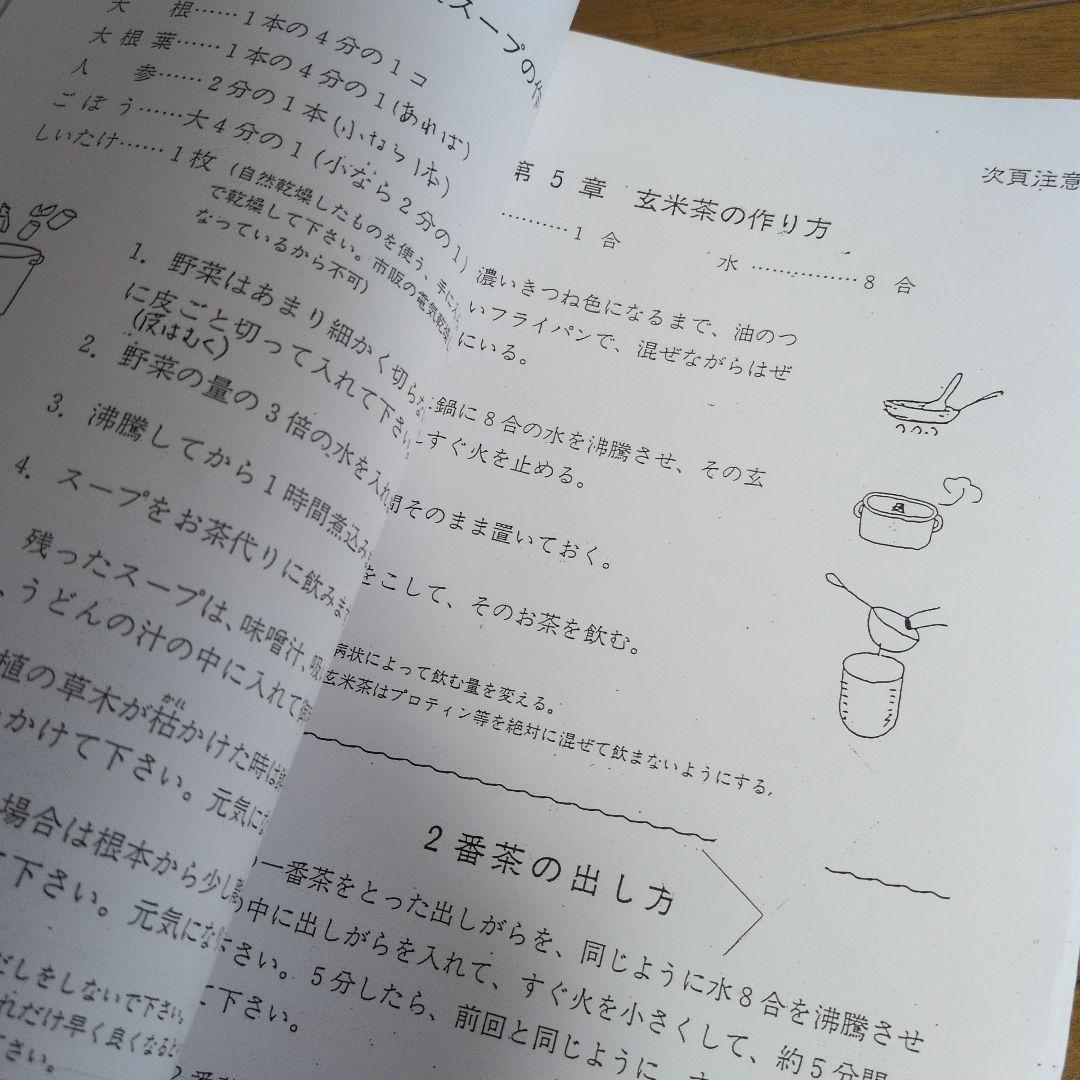 スープの作
大 根……1本の4分の1コ
大根葉……1本の4分の1(あれば)
人 参……2分の1本(小なら1本)
ごぼう……大4分の1(小なら2分の1)
しいたけ……1枚(自然乾燥したものを使う、手に入
で乾燥して下さい。市阪の電気乾燥
なっているから不可)
1. 野菜はあまり細かく切らな
に皮ごと切って入れて下さい
(皮はむく)
2. 野菜の量の3倍の水を入れ
3. 沸騰してから1時間煮込み
4. スープをお茶代りに飲みま
残ったスープは、味噌汁、吸
、うどんの汁の中に入れて
植の草木が枯かけた時は
かれ
かけて下さい。元気にな
場合は根本から少し
下さい。元気にな
だしをしないで下さい。
れだけ早く良くなると
さい。
次頁注意
第5章 玄米茶の作り方
………1 合
水 ……………8 合
濃いきつね色になるまで、油のつ
いフライパンで、混ぜながらはぜ
にいる。
鍋に8合の水を沸騰させ、その玄
すぐ火を止める。
間そのまま置いておく。
をこして、そのお茶を飲む。
病状によって飲む量を変える。
玄米茶はプロティン等を絶対に混ぜて飲まないようにする。
2番茶の出し方
一番茶をとった出しがらを、同じように水8合を沸騰させ
の中に出しがらを入れて、すぐ火を小さくして、約5分間
さい。5分したら、前回と同じように、
て下さい。
2番